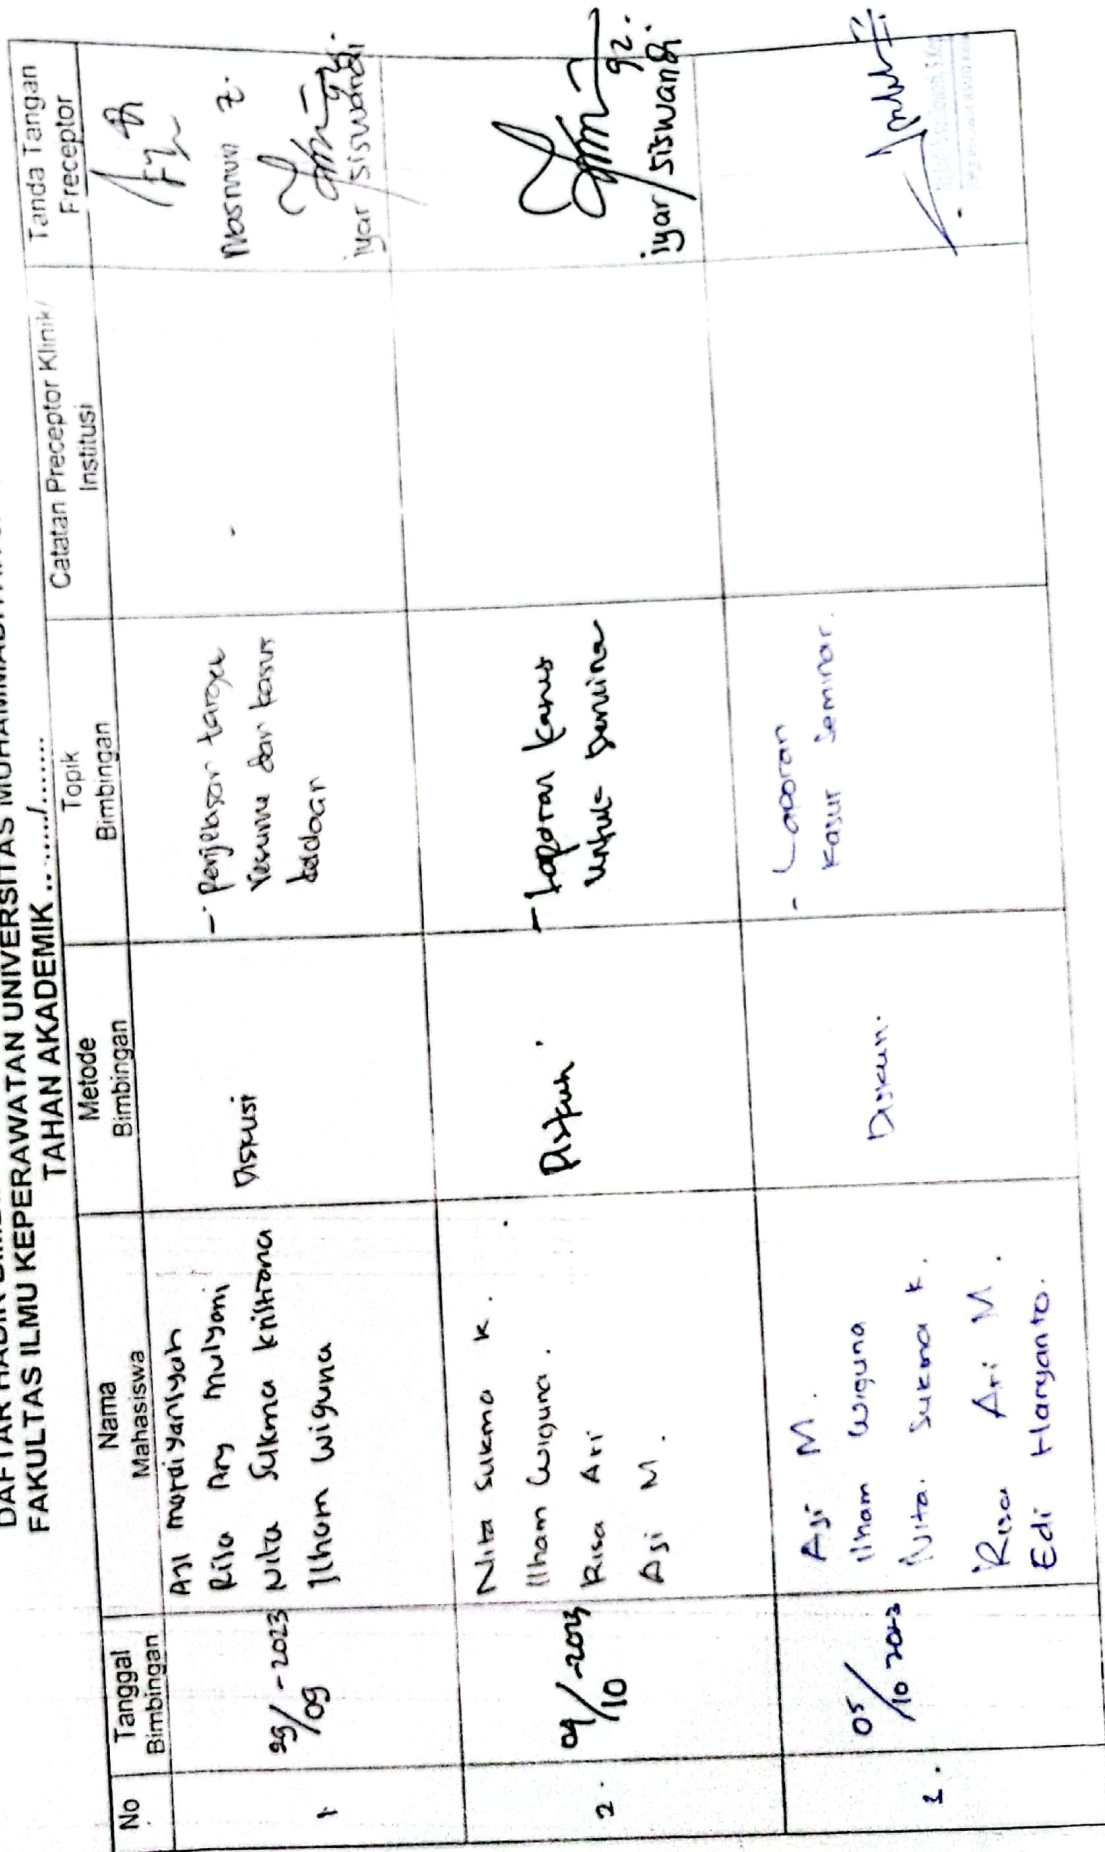 DAFTAR HADIR
FAKULTAS ILMU KEPERAWATAN UNIVERSITAS
TAHAN AKADEMIK ......../........
No
Tanggal
Bimbingan
Nama
Mahasiswa
Metode
Bimbingan
Topik
Bimbingan
Catatan Preceptor Klinik/
Institusi
Tanda Tangan
Freceptor
1
/09 -2023
Aji mardiyansyah
Risa Ary mulyani
Nita Sukma Kristiana
Ilham Wiguna
Diskusi
- Penjelasan target
resume dan kasus
Iyar Siswandi
2.
04/10 -2023
Nita Sukma K.
Ilham Wiguna.
Risa Ari
Aji M.
Diskusi
- Laporan kasus
untuk
Iyar Siswandi
3.
05/10 2023
Aji M.
Ilham Wiguna
Nita Sukma K.
Risa Ari M.
Edi Haryanto.
Diskusi.
- Laporan
Kasus Seminar.